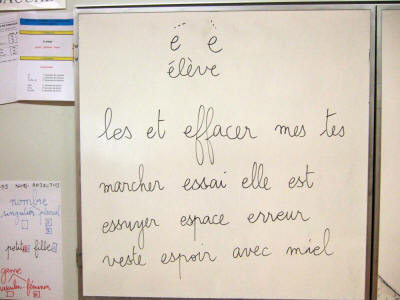 ë ê
élève
les et effacer mes tes
marcher essai elle est
essuyer espace erreur
veste espoir avec miel
nombre
singulier pluriel
petite fille
genre